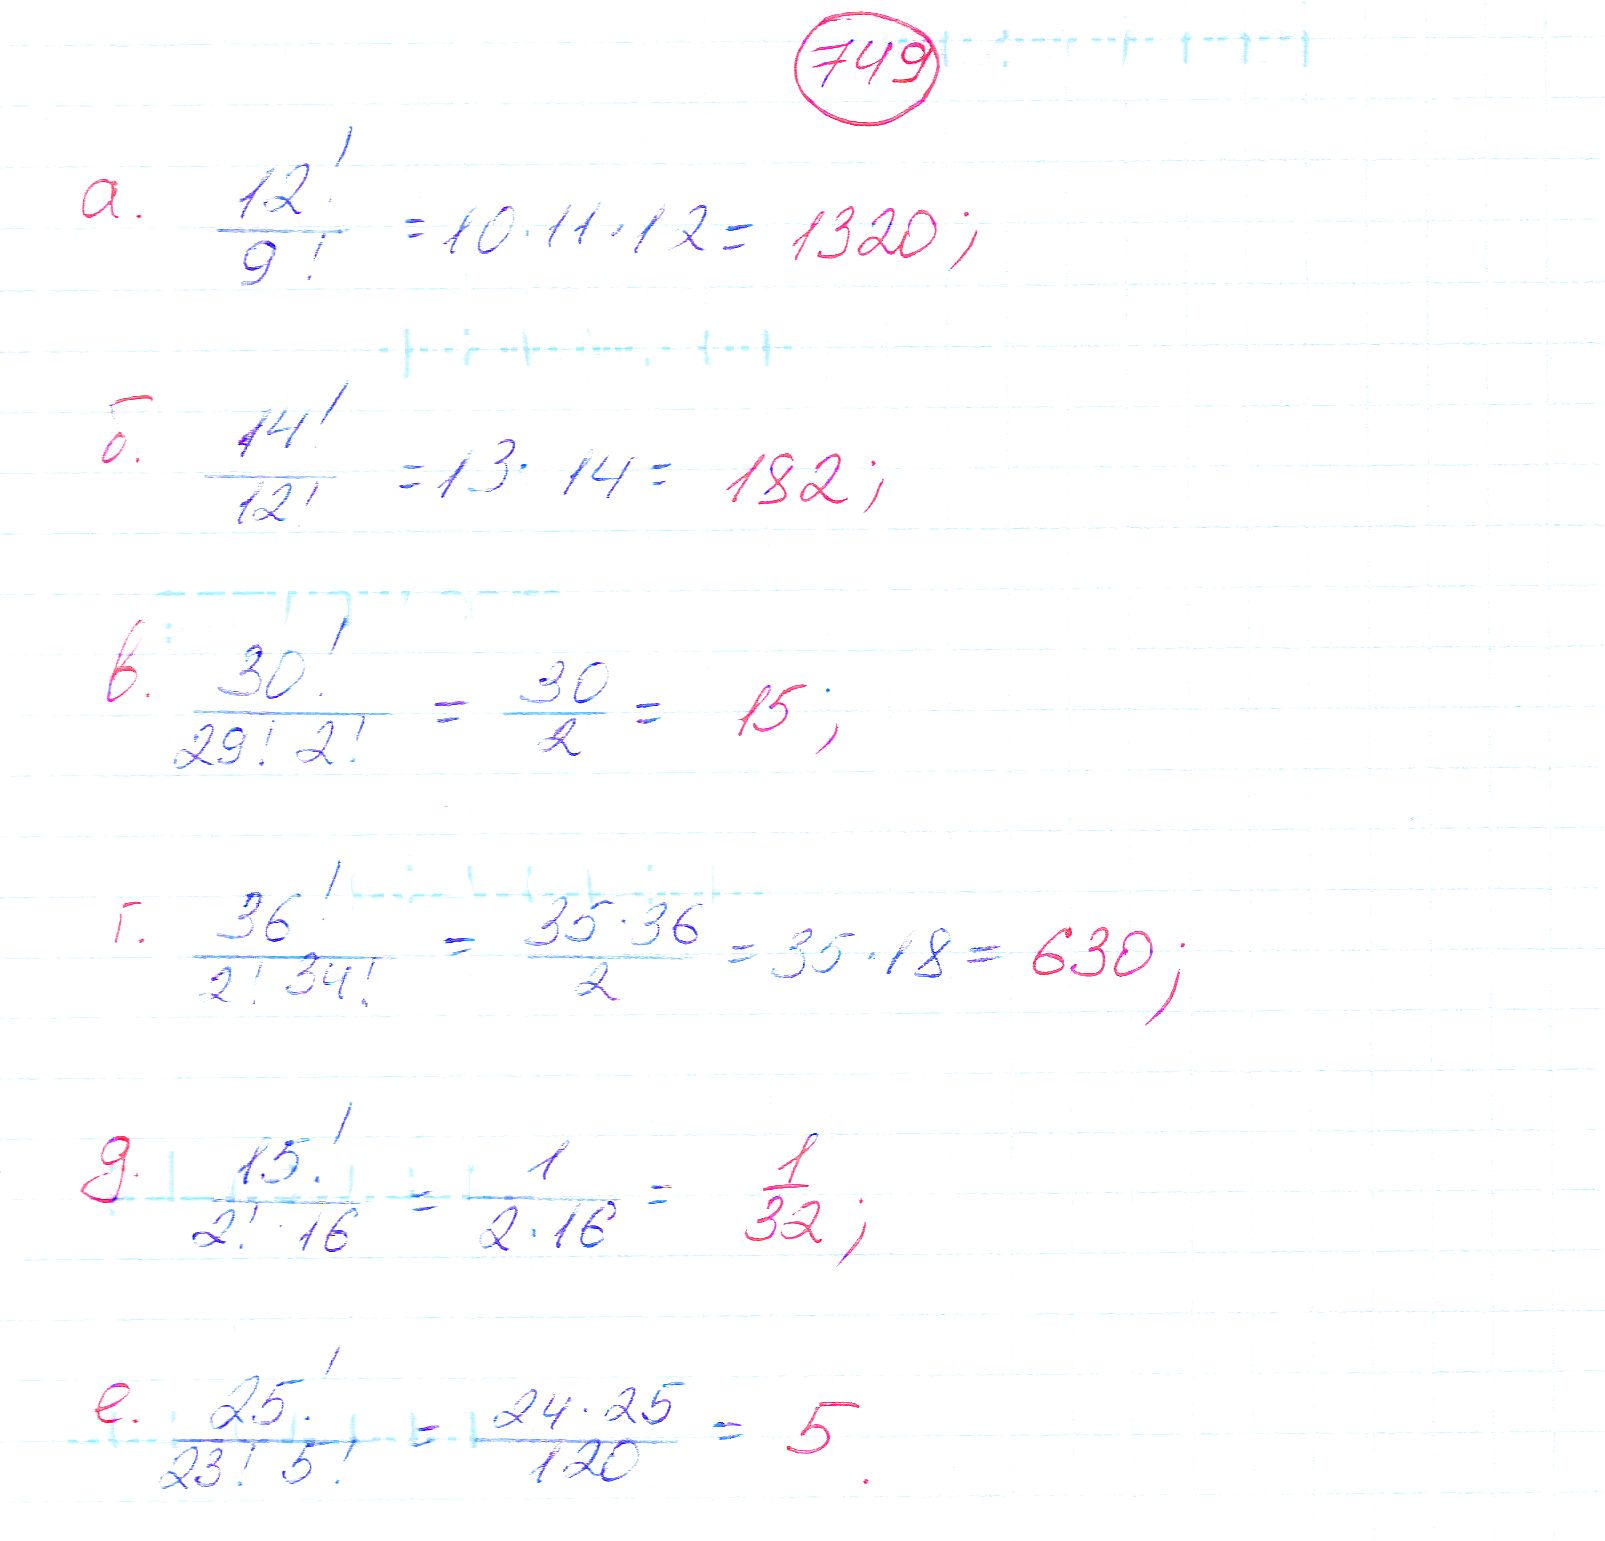 749
а. 12!/9! = 10·11·12 = 1320;
б. 14!/12! = 13·14 = 182;
в. 30!/29! 2! = 30/2 = 15;
г. 36!/2! 34! = 35·36/2 = 35·18 = 630;
д. 15!/2!·16 = 1/2·16 = 1/32;
е. 25!/23! 5! = 24·25/120 = 5.